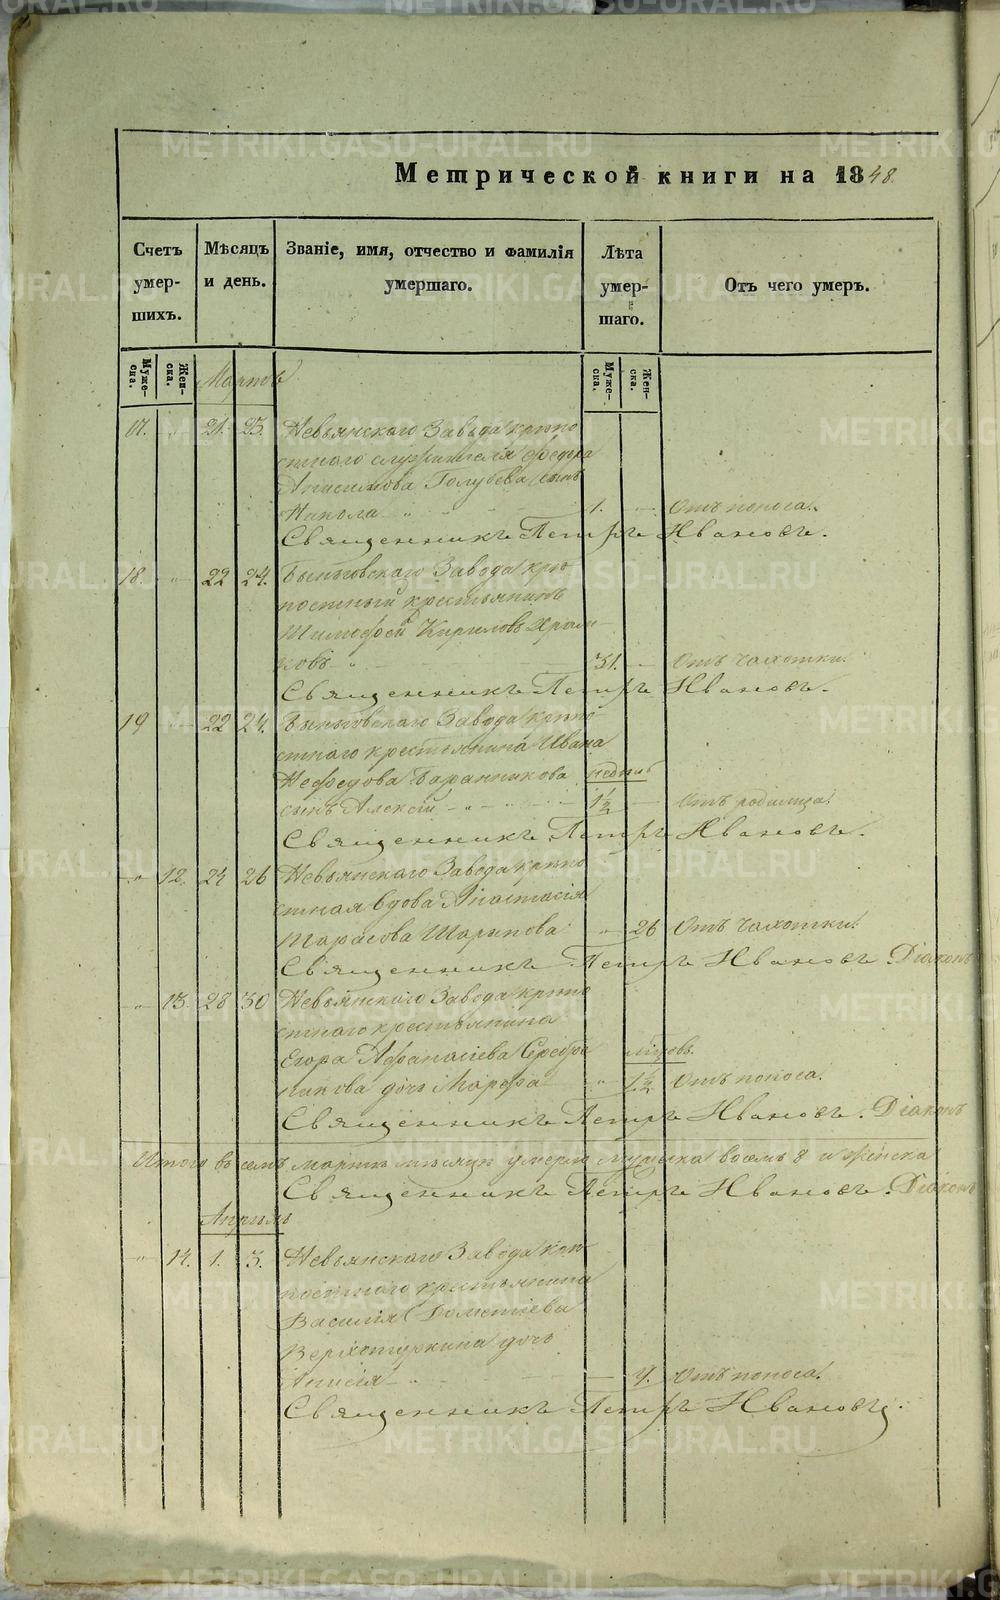 Метрической книги на 1848.
Счетъ умер-шихъ.
Мѣсяцъ и день.
Званіе, имя, отчество и фамилія умершаго.
Лѣта умер-шаго.
Отъ чего умеръ.
Муже-ска.
Жен-ска.
Муже-ска.
Жен-ска.
Мартъ
17. " 21. 23. Невьянскаго Завода крѣпо
стнаго служителя Ѳедора
Анисимова Голубева сынъ
Никола 1. Отъ поноса.
Священникъ Петръ Ивановъ.
18. " 22 24. Быньговскаго Завода крѣ
постный крестьянинъ
Тимофей Кириловъ
ковъ 31. Отъ чахотки.
Священникъ Петръ Ивановъ.
19 22 24. Быньговскаго Завода крѣпо
стнаго крестьянина Ивана
Нефедова Баранникова недѣль
сынъ Алексій 1½ Отъ родимца.
Священникъ Петръ Ивановъ.
" 12. 24 26 Невьянскаго Завода крѣпо
стная вдова Анастасія
Тарасова Шарыпова " 26 Отъ чахотки.
Священникъ Петръ Ивановъ. Діаконъ
" 13. 28 30 Невьянскаго Завода крѣпо
стнаго крестьянина
Егора Афанасіева Серебре
никова дочь Марфа " 1½ Отъ поноса.
Священникъ Петръ Ивановъ. Діаконъ
Итого въ семъ мартѣ мѣсяцѣ умерло мужеска восемь 8 и женска
Священникъ Петръ Ивановъ. Діаконъ
Апрѣль
" 14. 1. 3. Невьянскаго Завода крѣ
постнаго крестьянина
Василія Дометіева
Верхотуркина дочь
Анисія Отъ поноса.
Священникъ Петръ Ивановъ.
METRIKI.GASO-URAL.RU